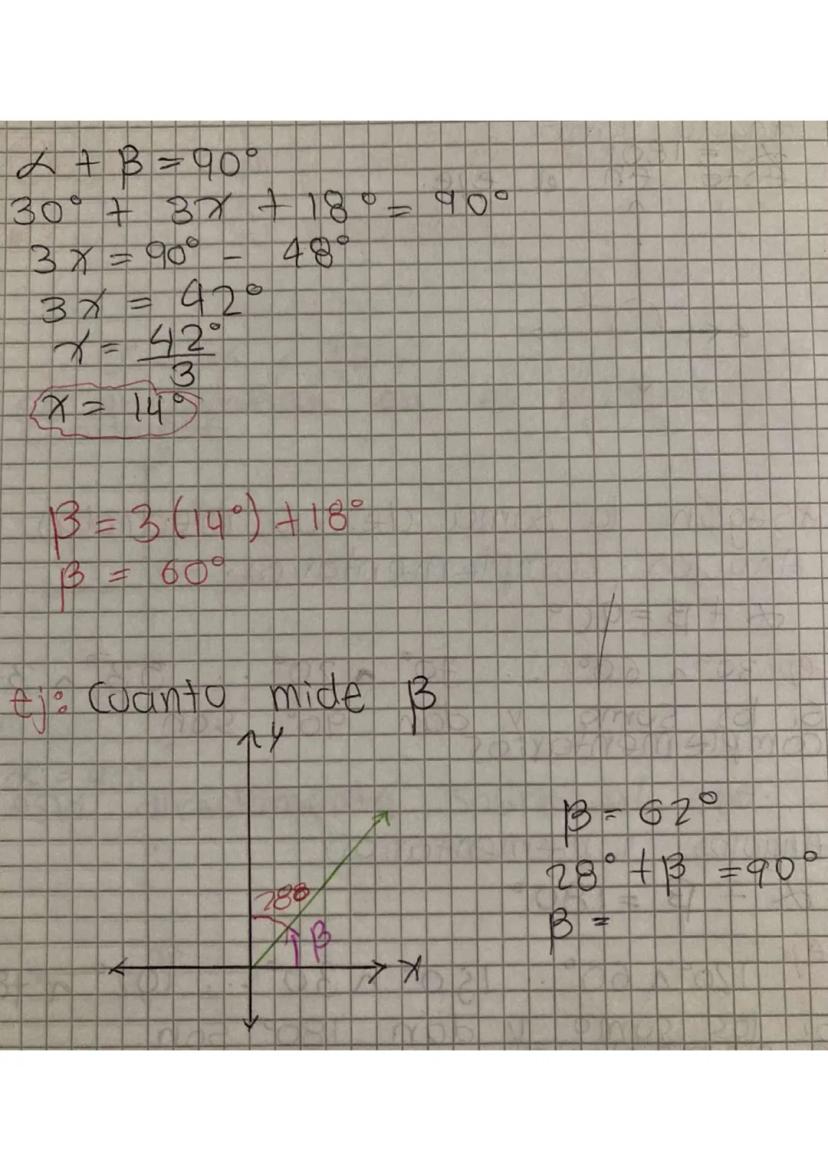 α + β = 90°
30° + 3x + 18° = 90°
3x = 90° - 48°
3x = 42°
x = 42°
3
x = 14°
β = 3(14°) + 18°
β = 60°
ej: Cuanto mide β
y
28°
β
x
β = 62°
28° + β = 90°
β =